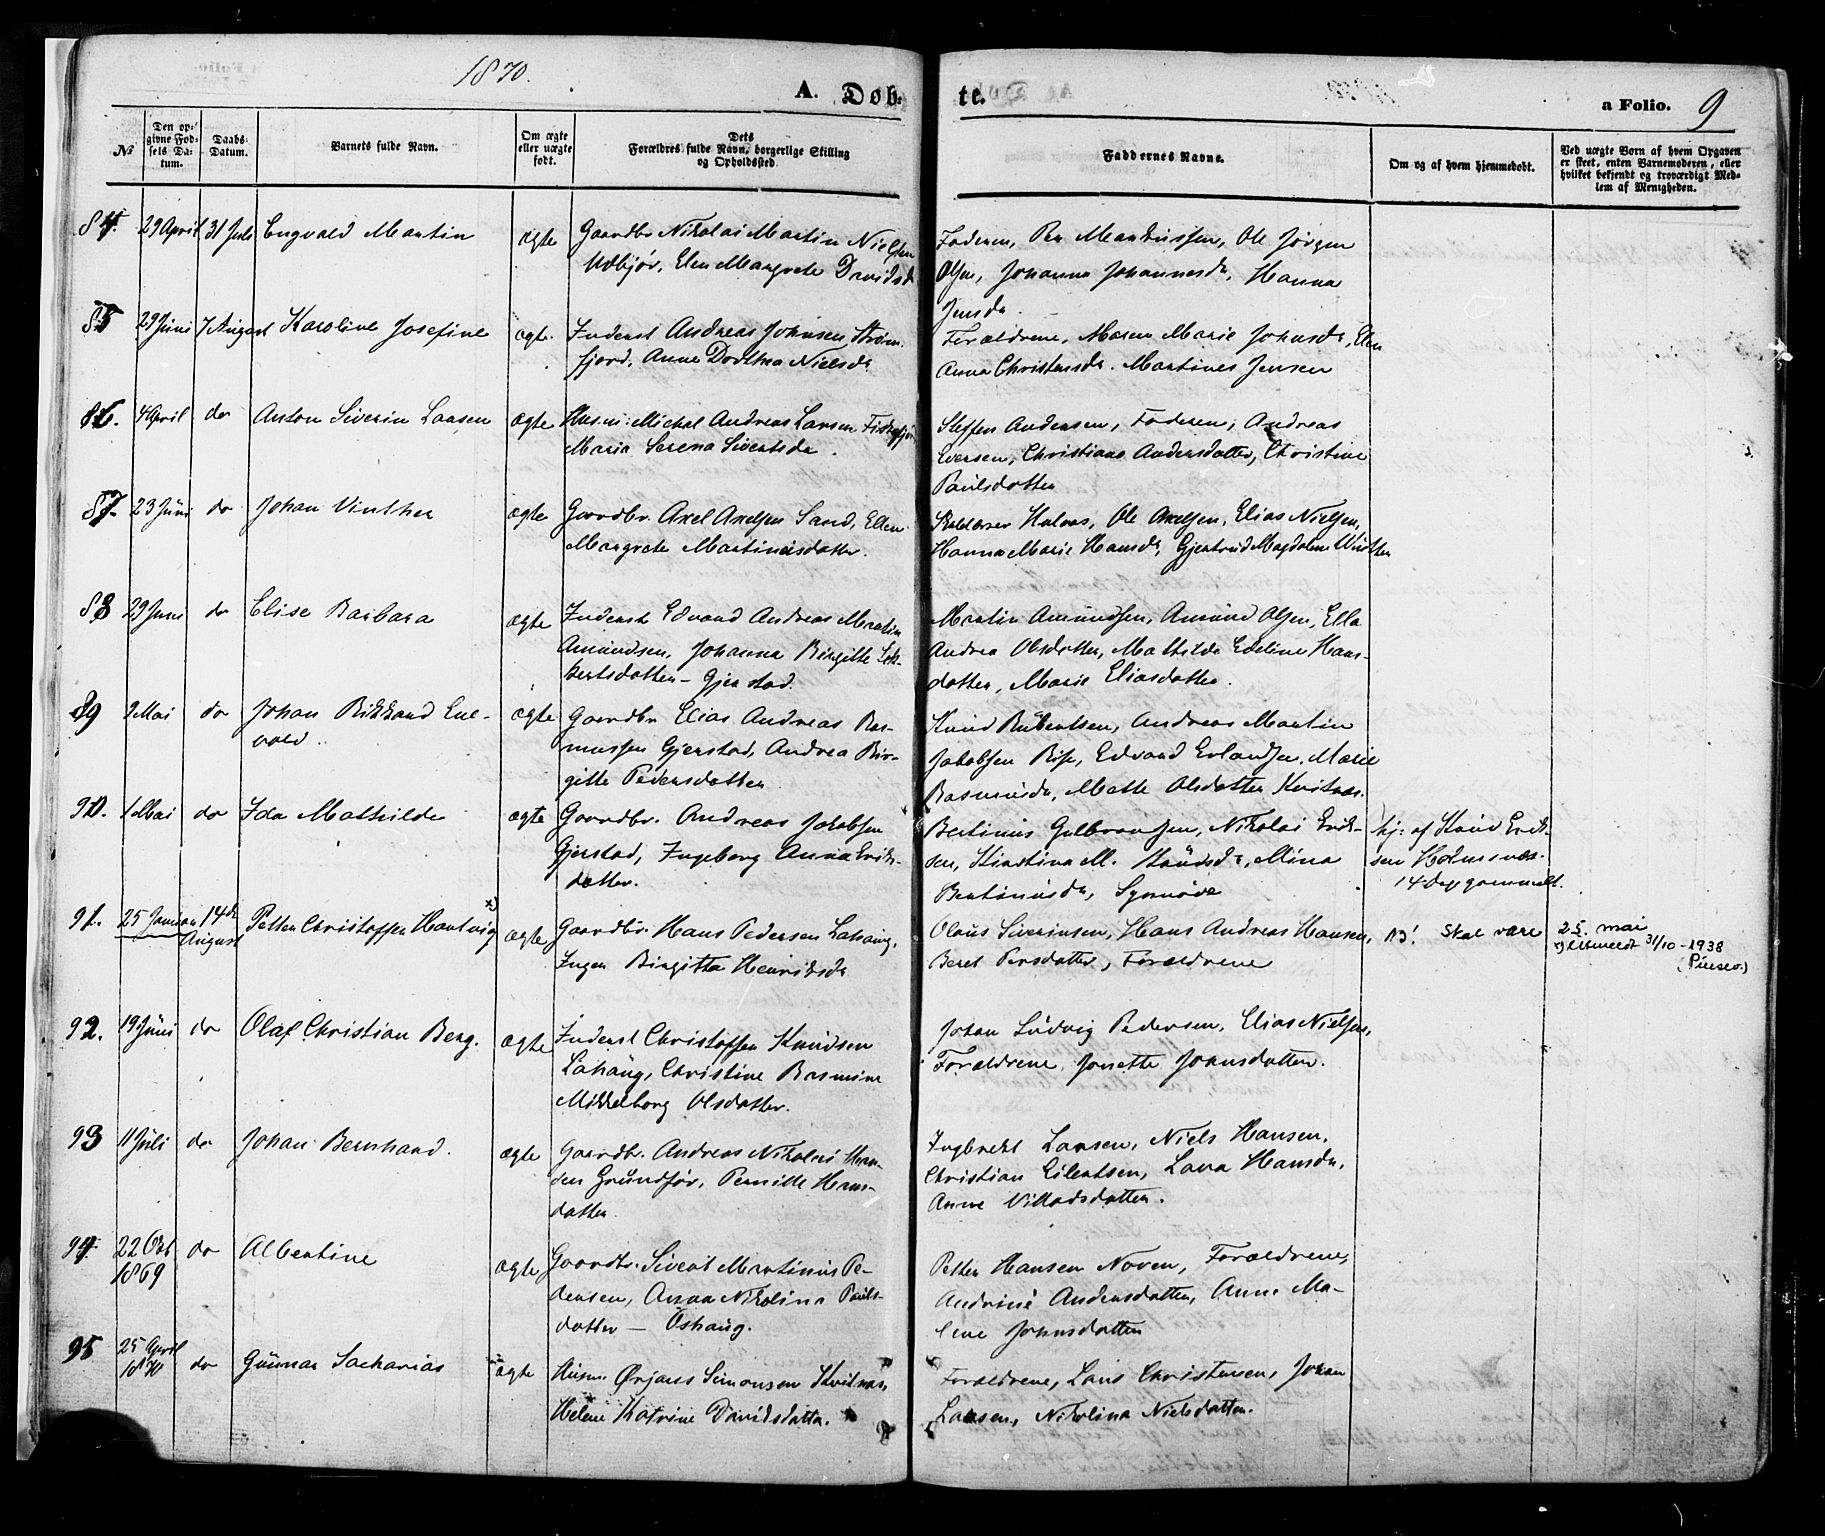 1870.
A. Døb-
te.
a Folio. 9
№
Den op-
givne Fød-
sels Da-
tum.
Daabs-
Datum.
Barnets fulde Navn.
Om ægte
eller uægte
født.
Dets
Forældres fulde Navn, borgerlige Stilling
og Opholdssted.
Faddernes Navne.
Om og af hvem hjemmedøbt.
Ved uægte Børn af hvem Opgaven
er skeet, enten Barnemoderen, eller
hvilket bekjendt og troværdigt Med-
lem af Menigheden.
84. 29 April 31 Juli Engvald Martin ægte Gaardbr Nikolai Martin Nielsen
Udbjør, Elen Margrete Davidsd
Faderen, Per Markussen, Ole Jørgen
Olsen, Johanna Johannesdr, Hanna
Jensdr.
85 29 Juni 7 August Karoline Josefine ægte. Inderst Andreas Johnsen Strøm-
fjord, Anne Dorthea Nielsdr
Forældrene, Maren Marie Johnsdr, Elen
Anna Christensdr. Martines Jensen
86. 4 April do Anton Siverin Larsen ægte Husm: Michel Andreas Larsen Fiskefjor
Maria Serena Sivertsdr.
Steffen Andersen, Faderen, Andreas
Evensen, Christiane Andersdatter, Christine
Paulsdatter
87. 23 Juni do Johan Vinther ægte Gaardbr. Axel Axelsen Sand, Ellen
Margrete Martinusdatter.
Skolelærer Halvas, Ole Axelsen, Elias Nielsen,
Hanna Marie Hansdr, Gjertrud Magdalene Winther
88 29 Juni do Elise Barbara ægte Inderst Edvard Andreas Martin
Amundsen, Johanna Birgitte
bertsdatter - Gjerstad.
Martin Amundsen, Amund Olsen, Ella
Andrea Olsdatter, Mathilde Edeline Hans-
datter, Marie Eliasdatter.
89 9 Mai do Johan Rikkard Ene-
vold.
ægte Gaardbr Elias Andreas Ras-
mussen Gjerstad, Andrea Bir-
gitte Pedersdatter
Knud Rubertsen, Andreas Martin
Jakobsen Rise, Edvard Erlandsen, Marie
Rasmusdr, Mette Olsdatter Kvitnes.
90. 1 Mai do Ida Mathilde ægte Gaardbr. Andreas Jakobsen
Gjerstad, Ingeborg Anna Eriks-
datter.
Bertinius Gulbransen, Nikolai Erik-
sen, Kjerstina M. Knudsdr, Mina
Bertinusdr, Synnøve
hj. af Knud Erik-
sen Holmsnes
14 dage gammelt.
91. 25 Januar 14de
August
Petter Christoffer Hartvig x) ægte Gaardbr. Hans Pedersen Lahaug,
Inger Birgitta Henriksdr
Olaus Siverinsen, Hans Andreas Hansen,
Beret Persdatter, Forældrene
NB! Skal være 25. mai
x) Utmeldt 31/10-1938
(Pinsev.)
92. 19 Juni do Olaf Christian Berg. ægte Inderst Christoffer Knudsen
Lahaug, Christine Rasmine
Mikkelborg Olsdatter.
Johan Ludvig Pedersen, Elias Nielsen,
Forældrene, Jonette Johnsdatter.
93 11 Juli do Johan Bernhard. ægte Gaardbr. Andreas Nikolai
den Grundfør, Pernille Hans-
datter.
Ingbrekt Larsen, Niels Hansen,
Christian Eilertsen, Lava Hansdr,
Anne Villadsdatter.
94. 22 Okt
1869
do Albertine ægte Gaardbr. Sivert Martinus Pe-
dersen, Anna Nikolina Pauls-
datter - Oshaug.
Petter Hansen Noven, Forældrene,
Andrine Andersdatter, Anne Ma-
lene Johnsdatter
95 25 April
1870
do Gunnar Sacharias ægte Husm. Ørjans Simonsen Kvitnes,
Helene Katrine Davidsdatter.
Forældrene, Lars Christensen, Johan
Larsen, Nikolina Nielsdatter.